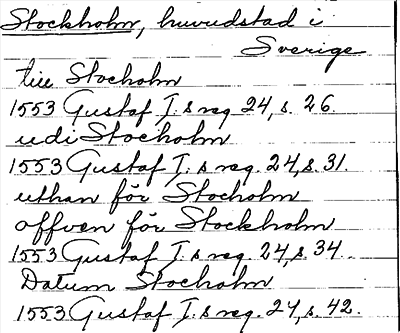 Stockholm, huvudstad i
Sverige
till Stocholm
1553 Gustaf I:s reg. 24, s. 26.
udi Stocholm
1553 Gustaf I:s reg. 24, s. 31.
uthan för Stocholm
offven för Stockholm
1553 Gustaf I:s reg. 24, s. 34
Datum Stocholm
1553 Gustaf I:s reg. 24, s. 42.